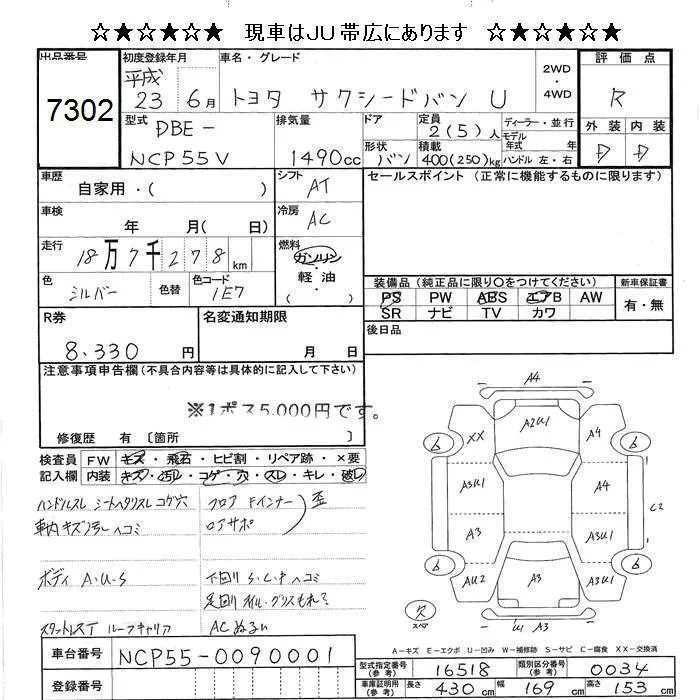 ☆★☆★☆★ 現車はJU帯広にあります ☆★☆★☆★
出品番号 7302
初度登録年月 平成 23 6月
車名・グレード トヨタ サクシードバン U
2WD・4WD
評価点 R
外装 内装
D D
型式 DBE-
NCP55V
排気量 1490cc
ドア
形状 バン
定員 2(5)人
積載 400(250)kg
ディーラー・並行
モデル年式 年式
ハンドル 左・右
車歴 自家用・( )
シフト AT
セールスポイント (正常に機能するものに限ります)
車検 年 月( 日)
冷房 AC
走行 18万7千278km
燃料 ガソリン・軽油・( )
色 シルバー 色替 色コード 1E7
装備品(純正品に限り○をつけてください)
PS PW ABS エアB AW
SR ナビ TV カワ
新車保証書
有・無
R券 8.330円
名変通知期限 月 日
後日品
注意事項申告欄(不具合内容等は具体的に記入して下さい)
※1ポス5,000円です。
修復歴 有 〔箇所 〕
検査員記入欄
FW キズ・飛石・ヒビ割・リペア跡・×要
内装 キズ・汚れ・コゲ・穴・スレ・キレ・破レ
ハンドルスレ シートヘタリスレコゲ穴
車内キズ汚レヘコミ
フロア Fインナー
ロアサポ
歪
ボディ A.U.S
下回り S.C.Pヘコミ
足回り オイル・グリスもれ?
スタットレスT ルーフキャリア
ACぬるい
A4
XX A2U1 A4
A3U1 A4
C2
A3 A3U1
AU2 A3 A3U1
U1 A3
6 6
6 6
欠
スペア
A-キズ E-エクボ U-凹み W-補修跡 S-サビ C-腐食 XX-交換済
車台番号 NCP55-0090001
登録番号
型式指定番号(参考) 16518
類別区分番号(参考) 0034
車庫証明用(参考) 長さ 430cm 幅 169cm 高さ 153cm